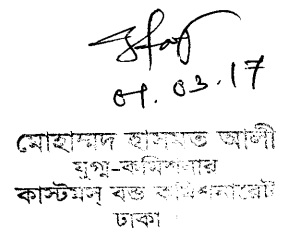 01.03.17
মোহাম্মদ হাসমত আলী
যুগ্ম-কমিশনার
কাস্টমস্ বন্ড কমিশনারেট
ঢাকা